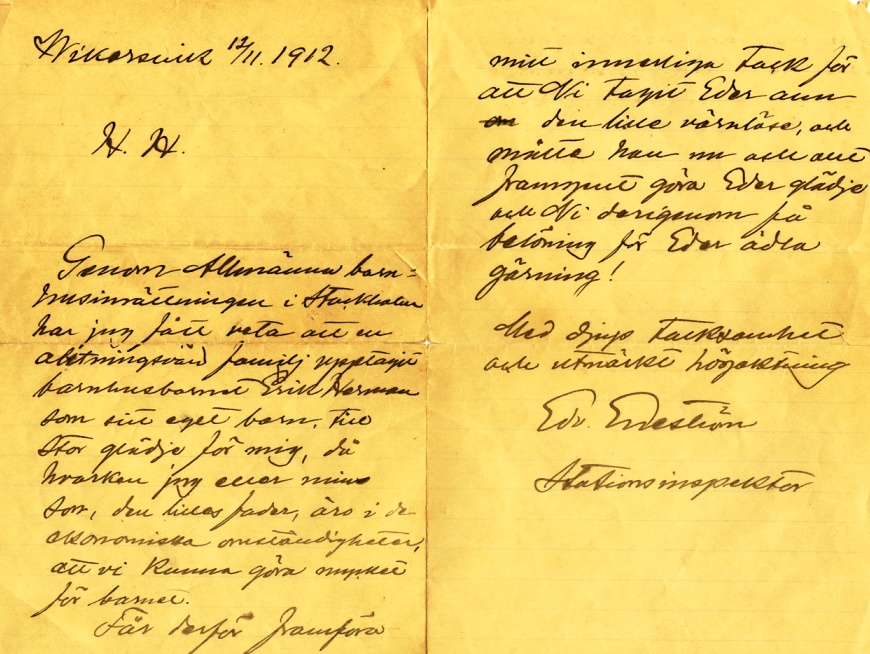 Wikersvick 12/11. 1912.
H. H.
Genom Allmänna barn=
husinrättningen i Stockholm
har jag fått veta att en
aktningsvärd familj upptagit
barnhusbarnet Erik Herman
som sitt eget barn, till
stor glädje för mig, då
hvarken jag eller min
son, den lilles fader, äro i de
ekonomiska omständigheter,
att vi kunna göra mycket
för barnet.
Får derför framföra
mitt innerliga tack för
att Ni tagit Eder ann
den lille värnlöse, och
måtte han nu och allt
framgent göra Eder glädje
och Ni derigenom få
belöning för Eder ädla
gärning!
Med djup tacksamhet
och utmärkt högaktning
Edv.
Stationsinspektor